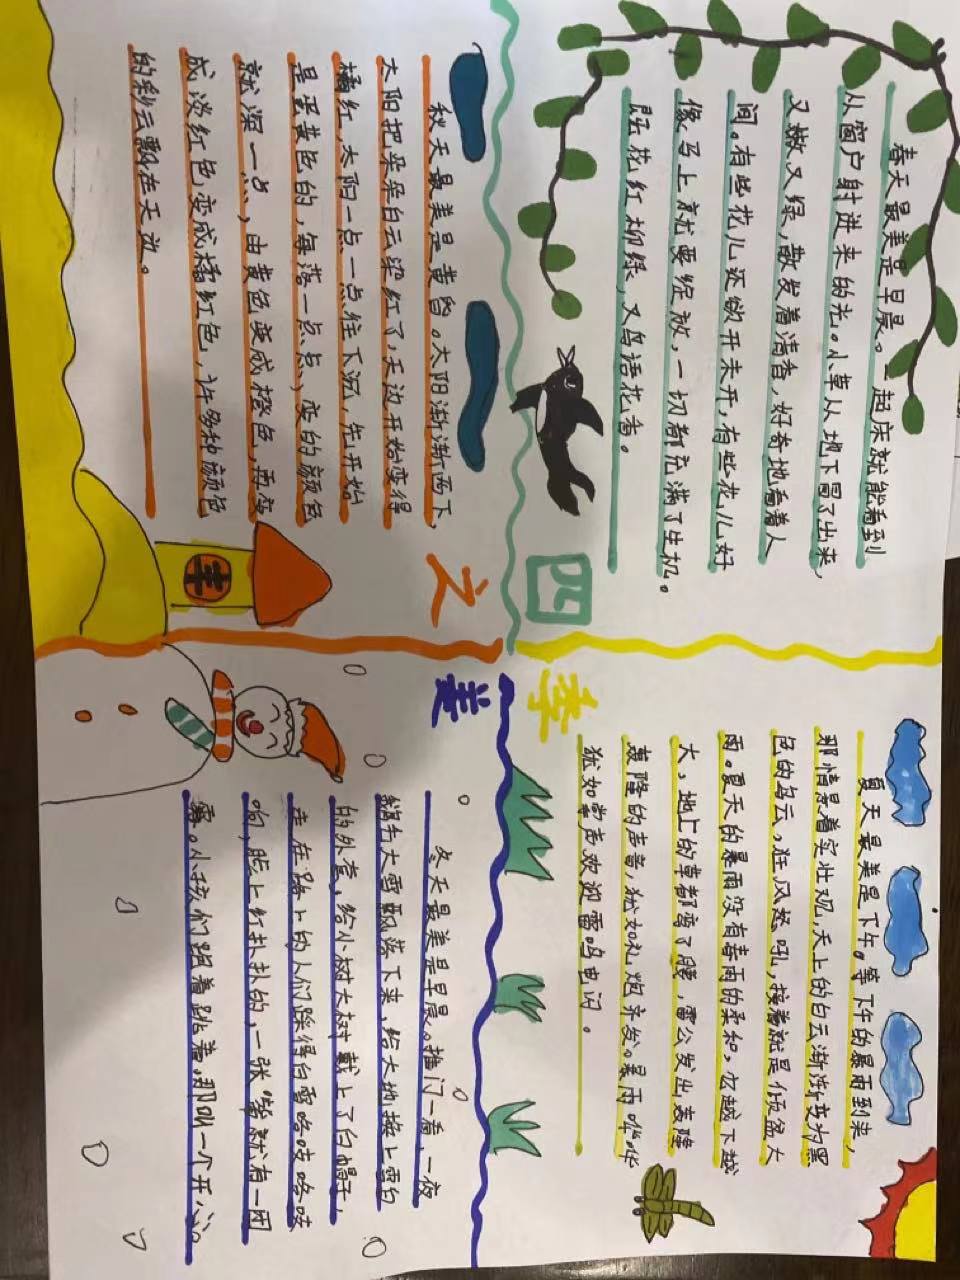 四
季
之
美
春天最美是早晨。一起床就能看到
从窗户射进来的光。小草从地下冒了出来,
又嫩又绿,散发着清香,好奇地看着人
间。有些花儿还欲开未开,有些花儿好
像马上就要绽放,一切都充满了生机。
既花红柳绿,又鸟语花香。
夏天最美是下午。等下午的暴雨到来,
那情景着实壮观,天上的白云渐渐变为黑
色的乌云,狂风怒吼,接着就是倾盆大
雨。夏天的暴雨没有春雨的柔和,么越下越
大,地上的草都弯了腰,雷公发出轰隆
轰隆的声音,犹如礼炮齐发。暴雨哗哗
犹如掌声欢迎雷鸣电闪。
秋天最美是黄昏。太阳渐渐西下,
太阳把朵朵白云染红了天边开始变得
橘红,太阳一点一点往下沉,先开始
是蛋黄色的,每落一点点,变的颜色
就深一点,由黄色变成橙色,再变
成淡红色,变成橘红色,许多种颜色
的彩云飘在天边。
丰
冬天最美是早晨。推门一看,一夜
鹅毛大雪飘落下来,给大地换上雪白
的外套,给小树大树戴上了白帽子,
走在路上的人们踩得白雪咯吱咯吱
响,脸上红扑扑的,一张嘴就有一团
雾。小孩们跟着跳着,那叫一个开心